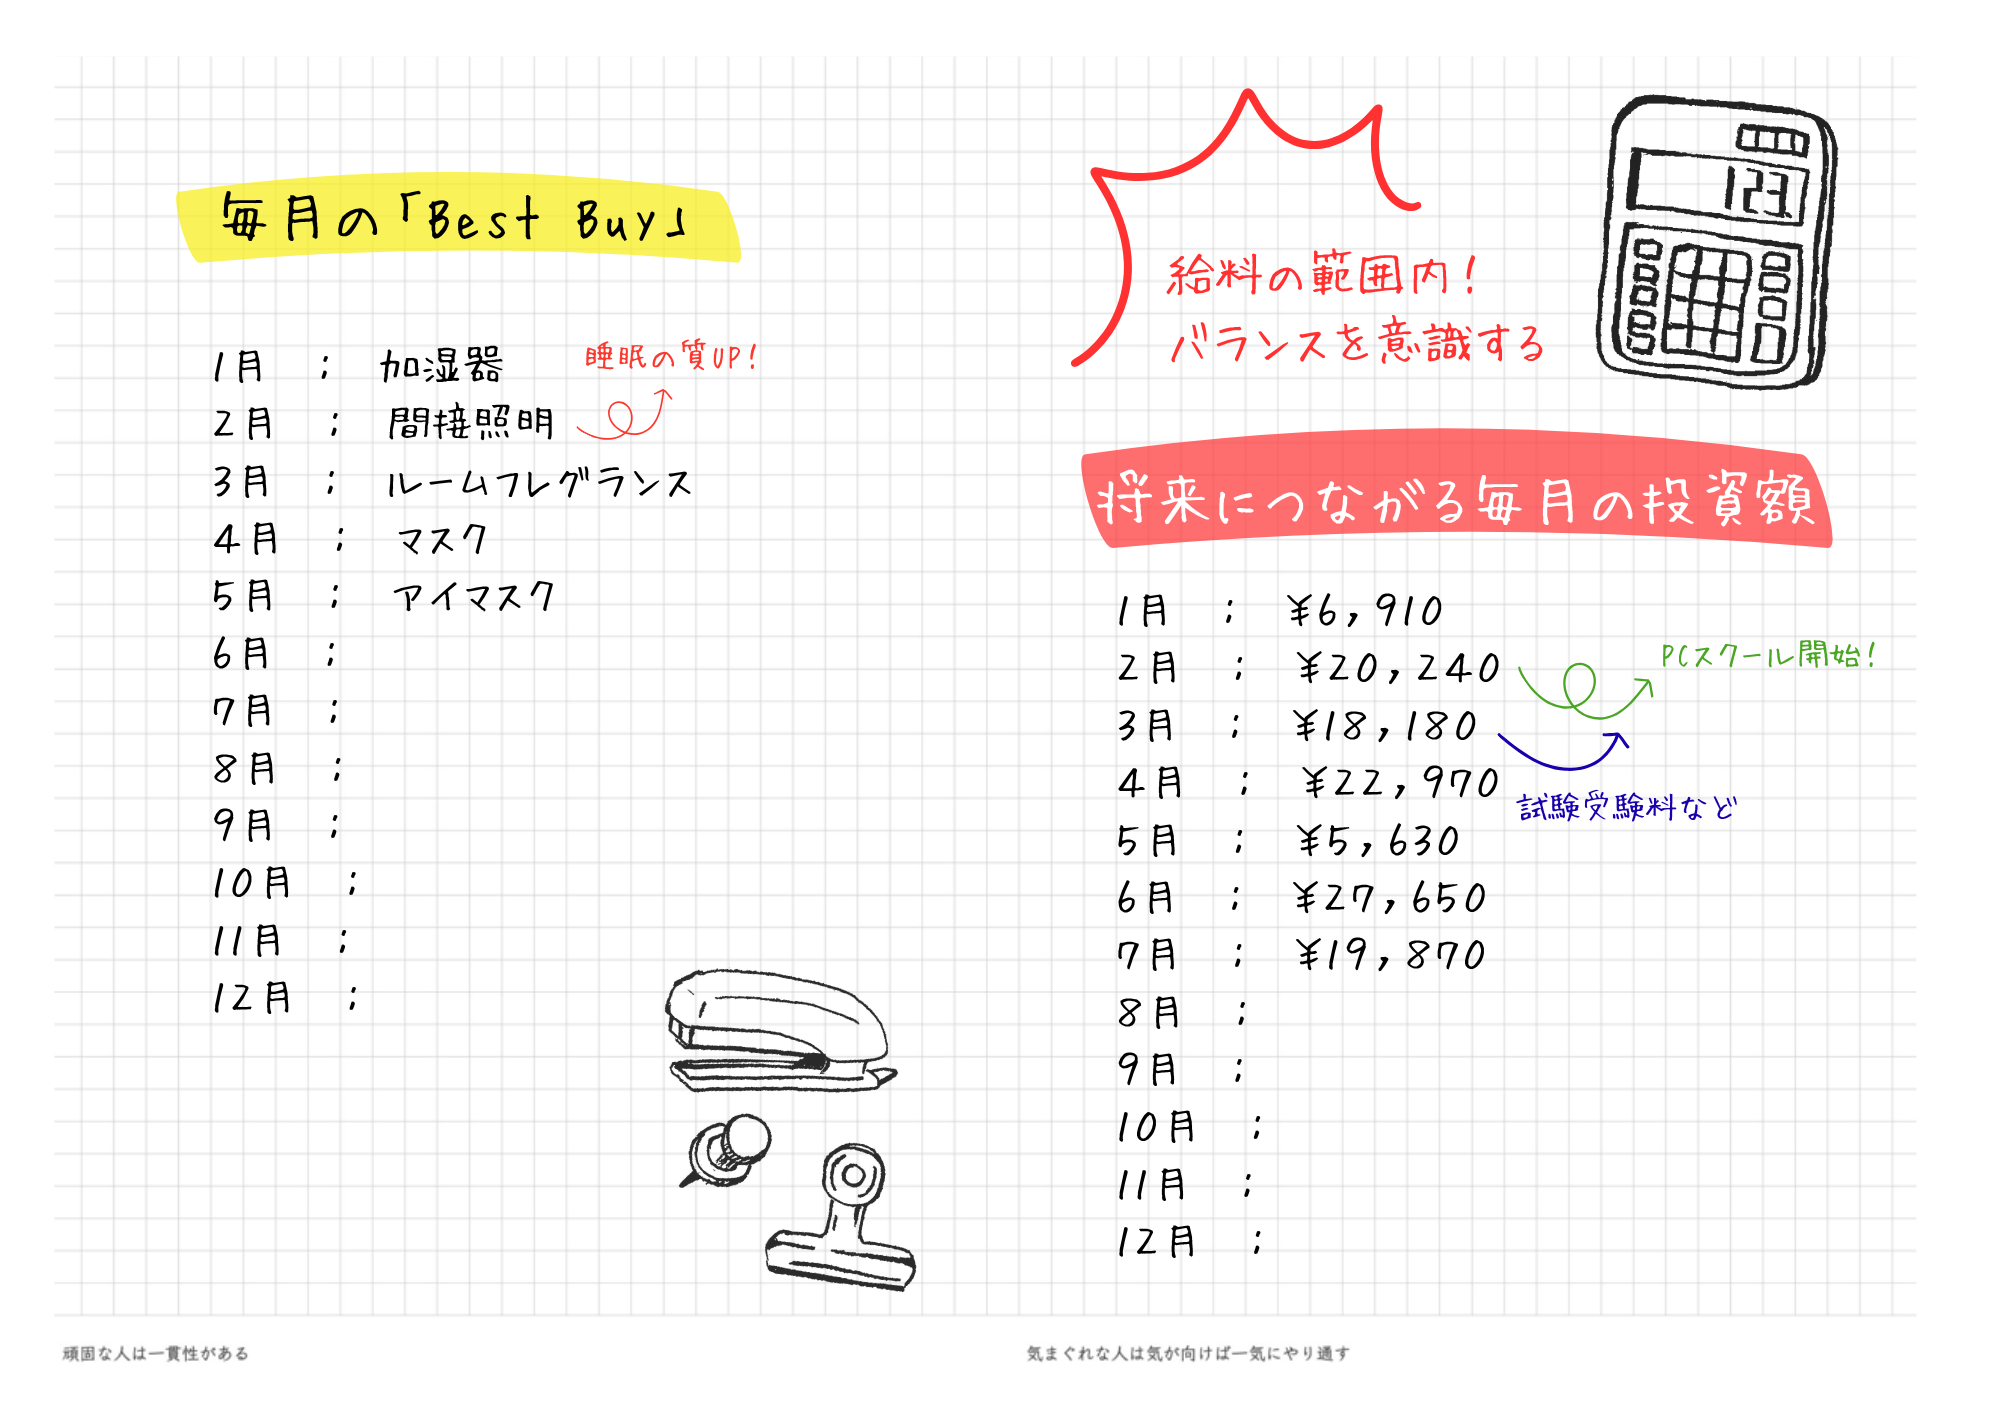 毎月の「Best Buy」
1月 ; 加湿器
睡眠の質UP!
2月 ; 間接照明
3月 ; ルームフレグランス
4月 ; マスク
5月 ; アイマスク
6月 ;
7月 ;
8月 ;
9月 ;
10月 ;
11月 ;
12月 ;
頑固な人は一貫性がある
123
給料の範囲内!
バランスを意識する
将来につながる毎月の投資額
1月 ; ¥6,910
2月 ; ¥20,240
PCスクール開始!
3月 ; ¥18,180
4月 ; ¥22,970
試験受験料など
5月 ; ¥5,630
6月 ; ¥27,650
7月 ; ¥19,870
8月 ;
9月 ;
10月 ;
11月 ;
12月 ;
気まぐれな人は気が向けば一気にやり通す